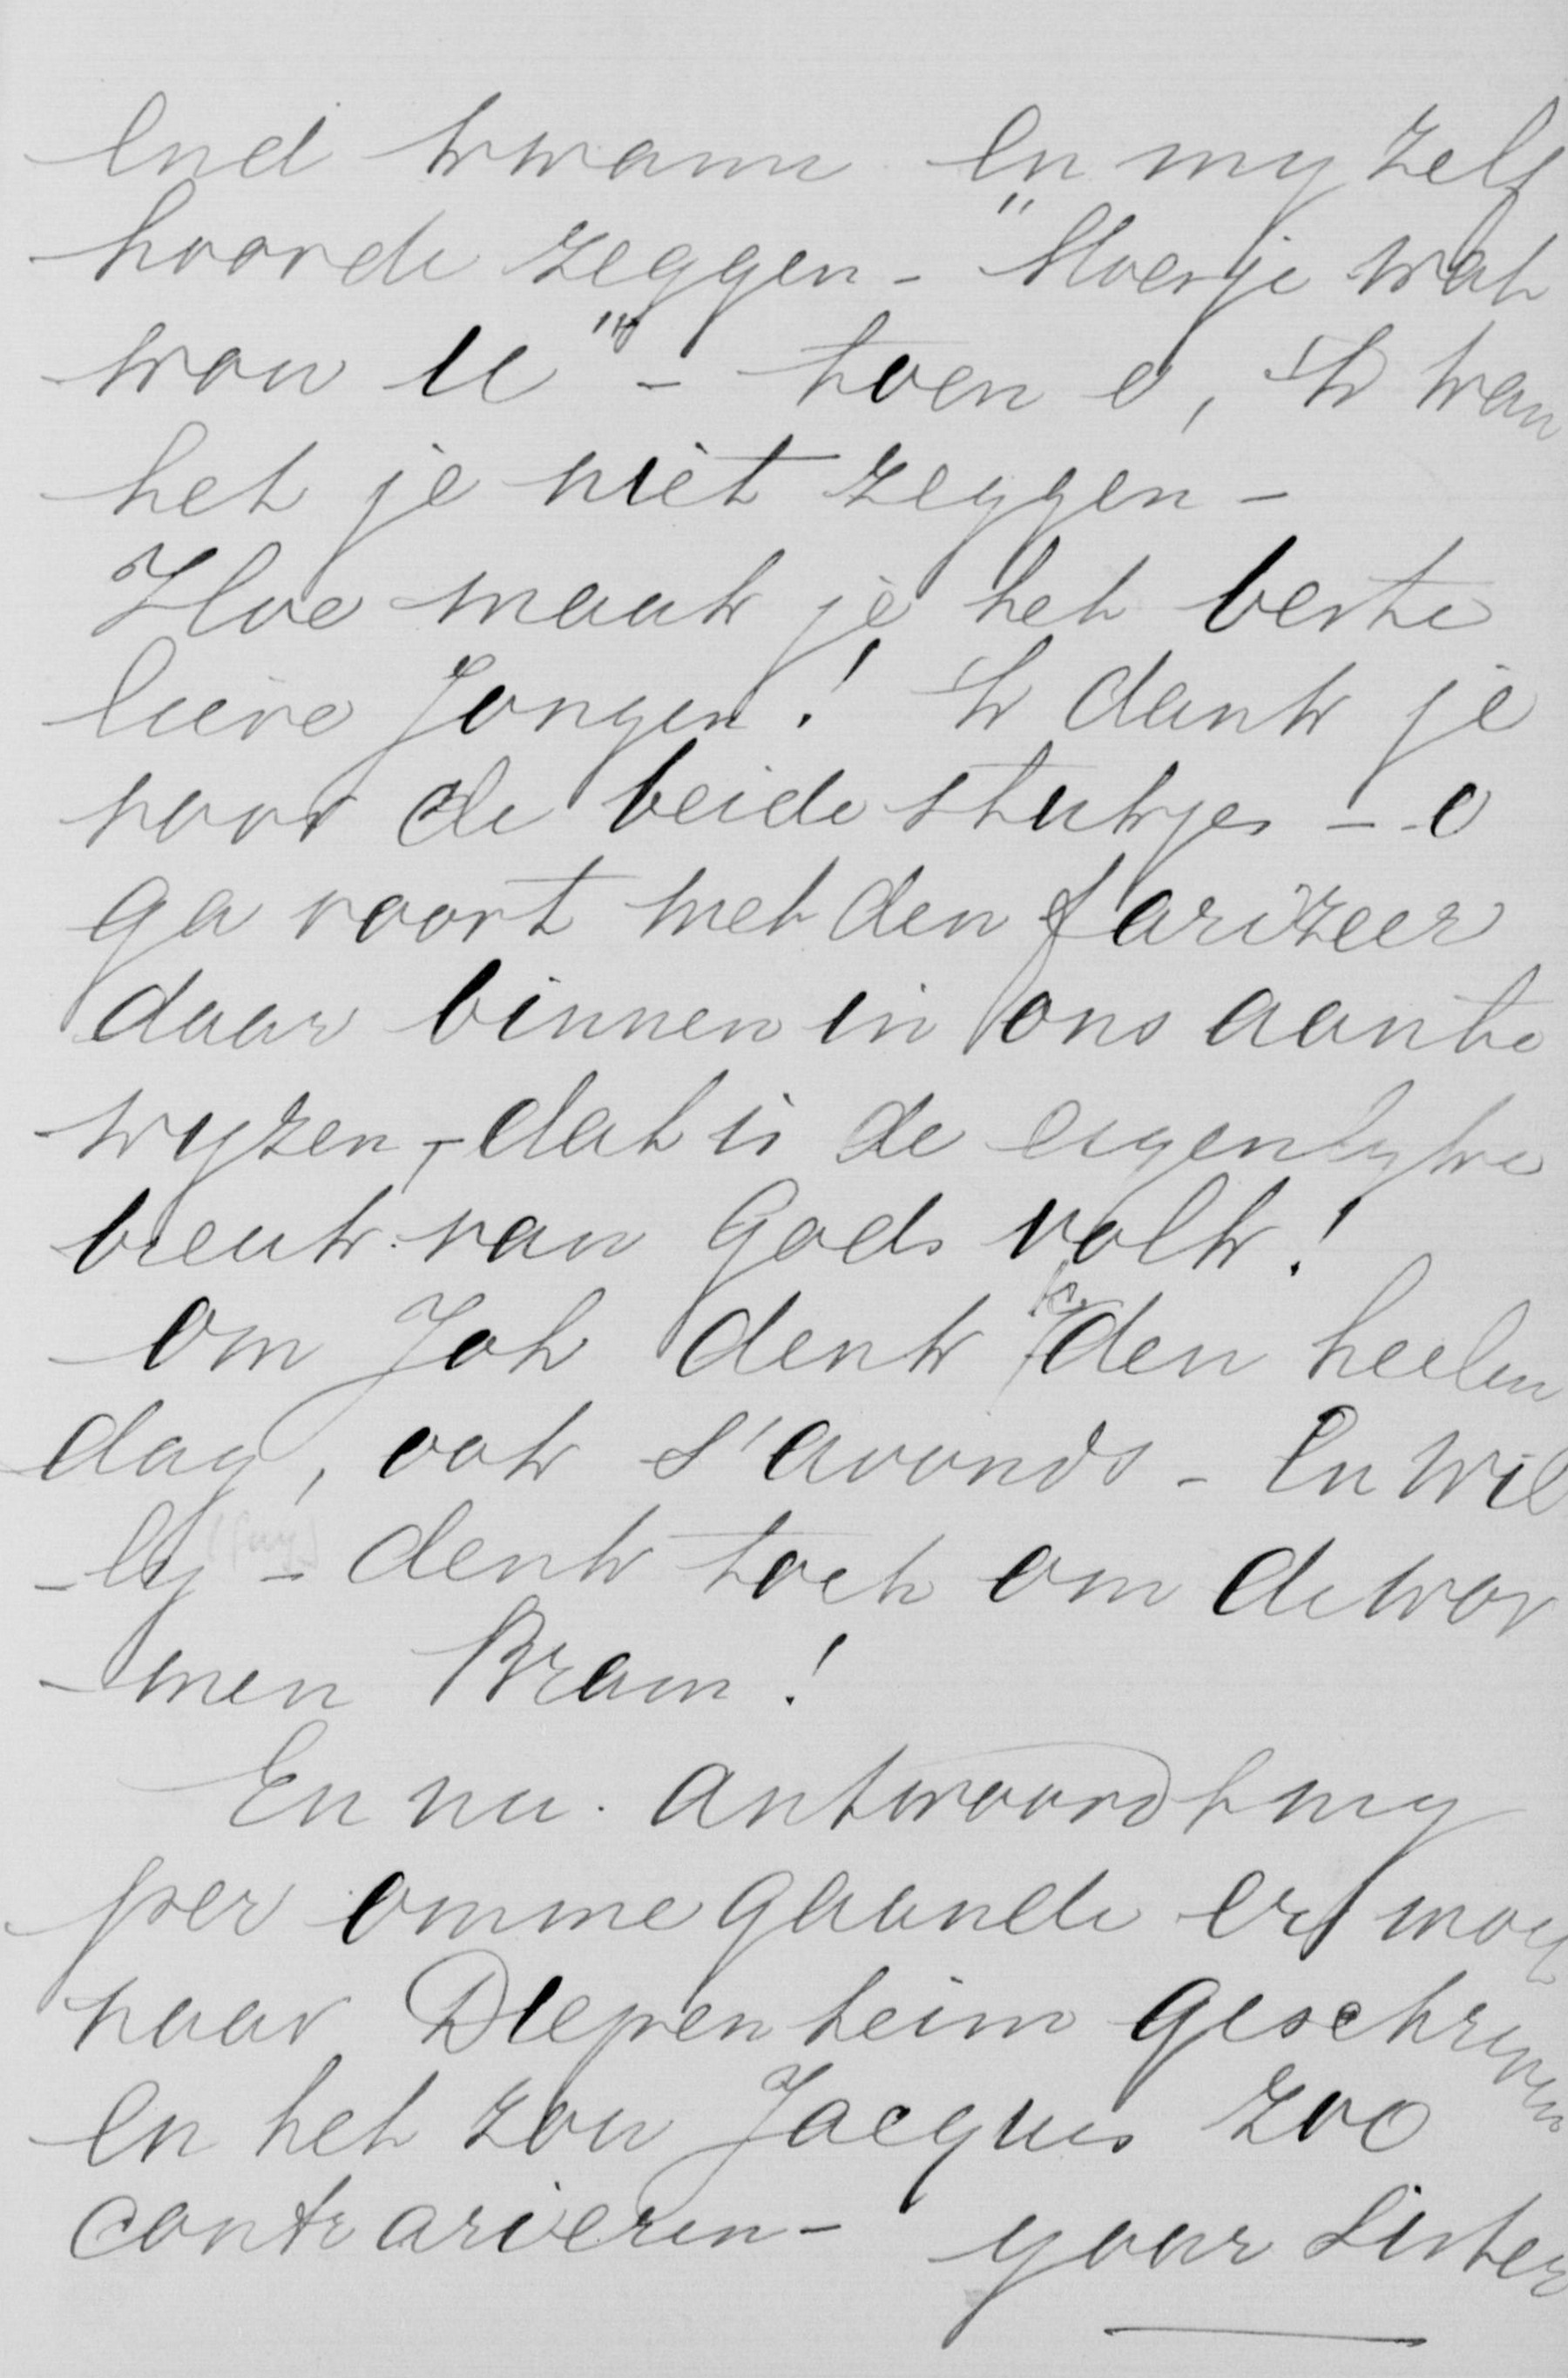 end kwam en my zelf
hoorde zeggen - "Moesje wat
wou u" - toen o, ik kan
het je niet zeggen -
Hoe maak je het beste
lieve Jongen! Ik dank je
voor de beide stukjes - o
ga voort met den farizeer
daar binnen in ons aan te
wyzen, - dat is de eigenlyke
breuk van Gods volk!
om Joh denk ik den heelen
dag, ook s'avonds - En Wil
-ly - denk toch om de wor
-men Bram!
En nu. antwoordt my
per ommegaande er moet
naar Diepenheim geschreven
en het zou Jacques zoo
contrarieren - your Sister